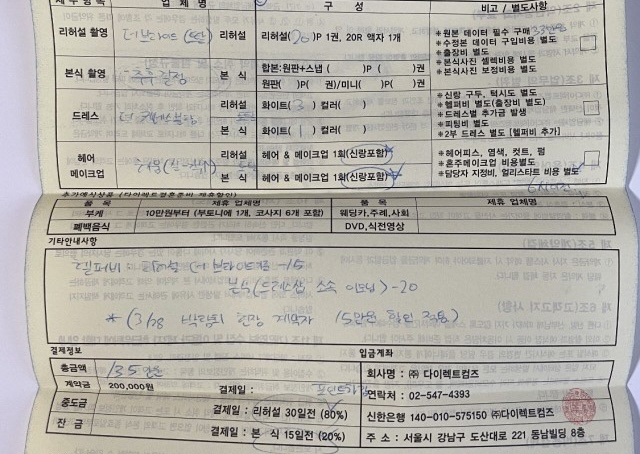 계약항목 업체명 구 성 비고 / 별도사항
리허설 촬영 리허설 리허설(20)P 1권, 20R 액자 1개
※원본 데이터 필수 구매 33만원
※수정본 데이터 구입비용 별도
※출장비 별도
※본식사진 셀렉비용 별도
※본식사진 보정비용 별도
본식 촬영 추후결정 본 식 합본:원판+스냅 ( )P ( )권
원판( )P( 권)/미니( )P( )권
드레스 리허설 화이트( 3 ) 컬러( )
본 식 화이트( 1 ) 컬러( )
※신랑 구두, 턱시도 별도
※헬퍼비 별도(출장비 별도)
※드레스별 추가금 발생
※피팅비 별도
※2부 드레스 별도 [헬퍼비 추가]
헤어 메이크업 리허설 헤어 & 메이크업 1회(신랑포함)
본 식 헤어 & 메이크업 1회(신랑포함)
※헤어피스, 염색, 커트, 펌
※혼주메이크업 비용별도
※담당자 지정비, 얼리스타트 비용 별도
추가예식상품 (다이렉트결혼준비 제휴할인)
품 목 제휴 업체명 품 목 제휴 업체명
부케 10만원부터 (부토니에 1개, 코사지 6개 포함) 웨딩카,주례,사회
폐백음식 DVD,식전영상
기타안내사항
-15
본식(드레스샵 소속 이모님) -20
* (3/28 박람회 현장 계약자 15만원 할인 적용)
결제정보 입금계좌
총금액 135만원 회사명 : ㈜ 다이렉트컴즈
계약금 200,000원 결제일 : 연락처 : 02-547-4393
중도금 결제일 : 리허설 30일전 (80%) 신한은행 140-010-575150 ㈜다이렉트컴즈
잔 금 결제일 : 본 식 15일전 (20%) 주 소 : 서울시 강남구 도산대로 221 동남빌딩 8층